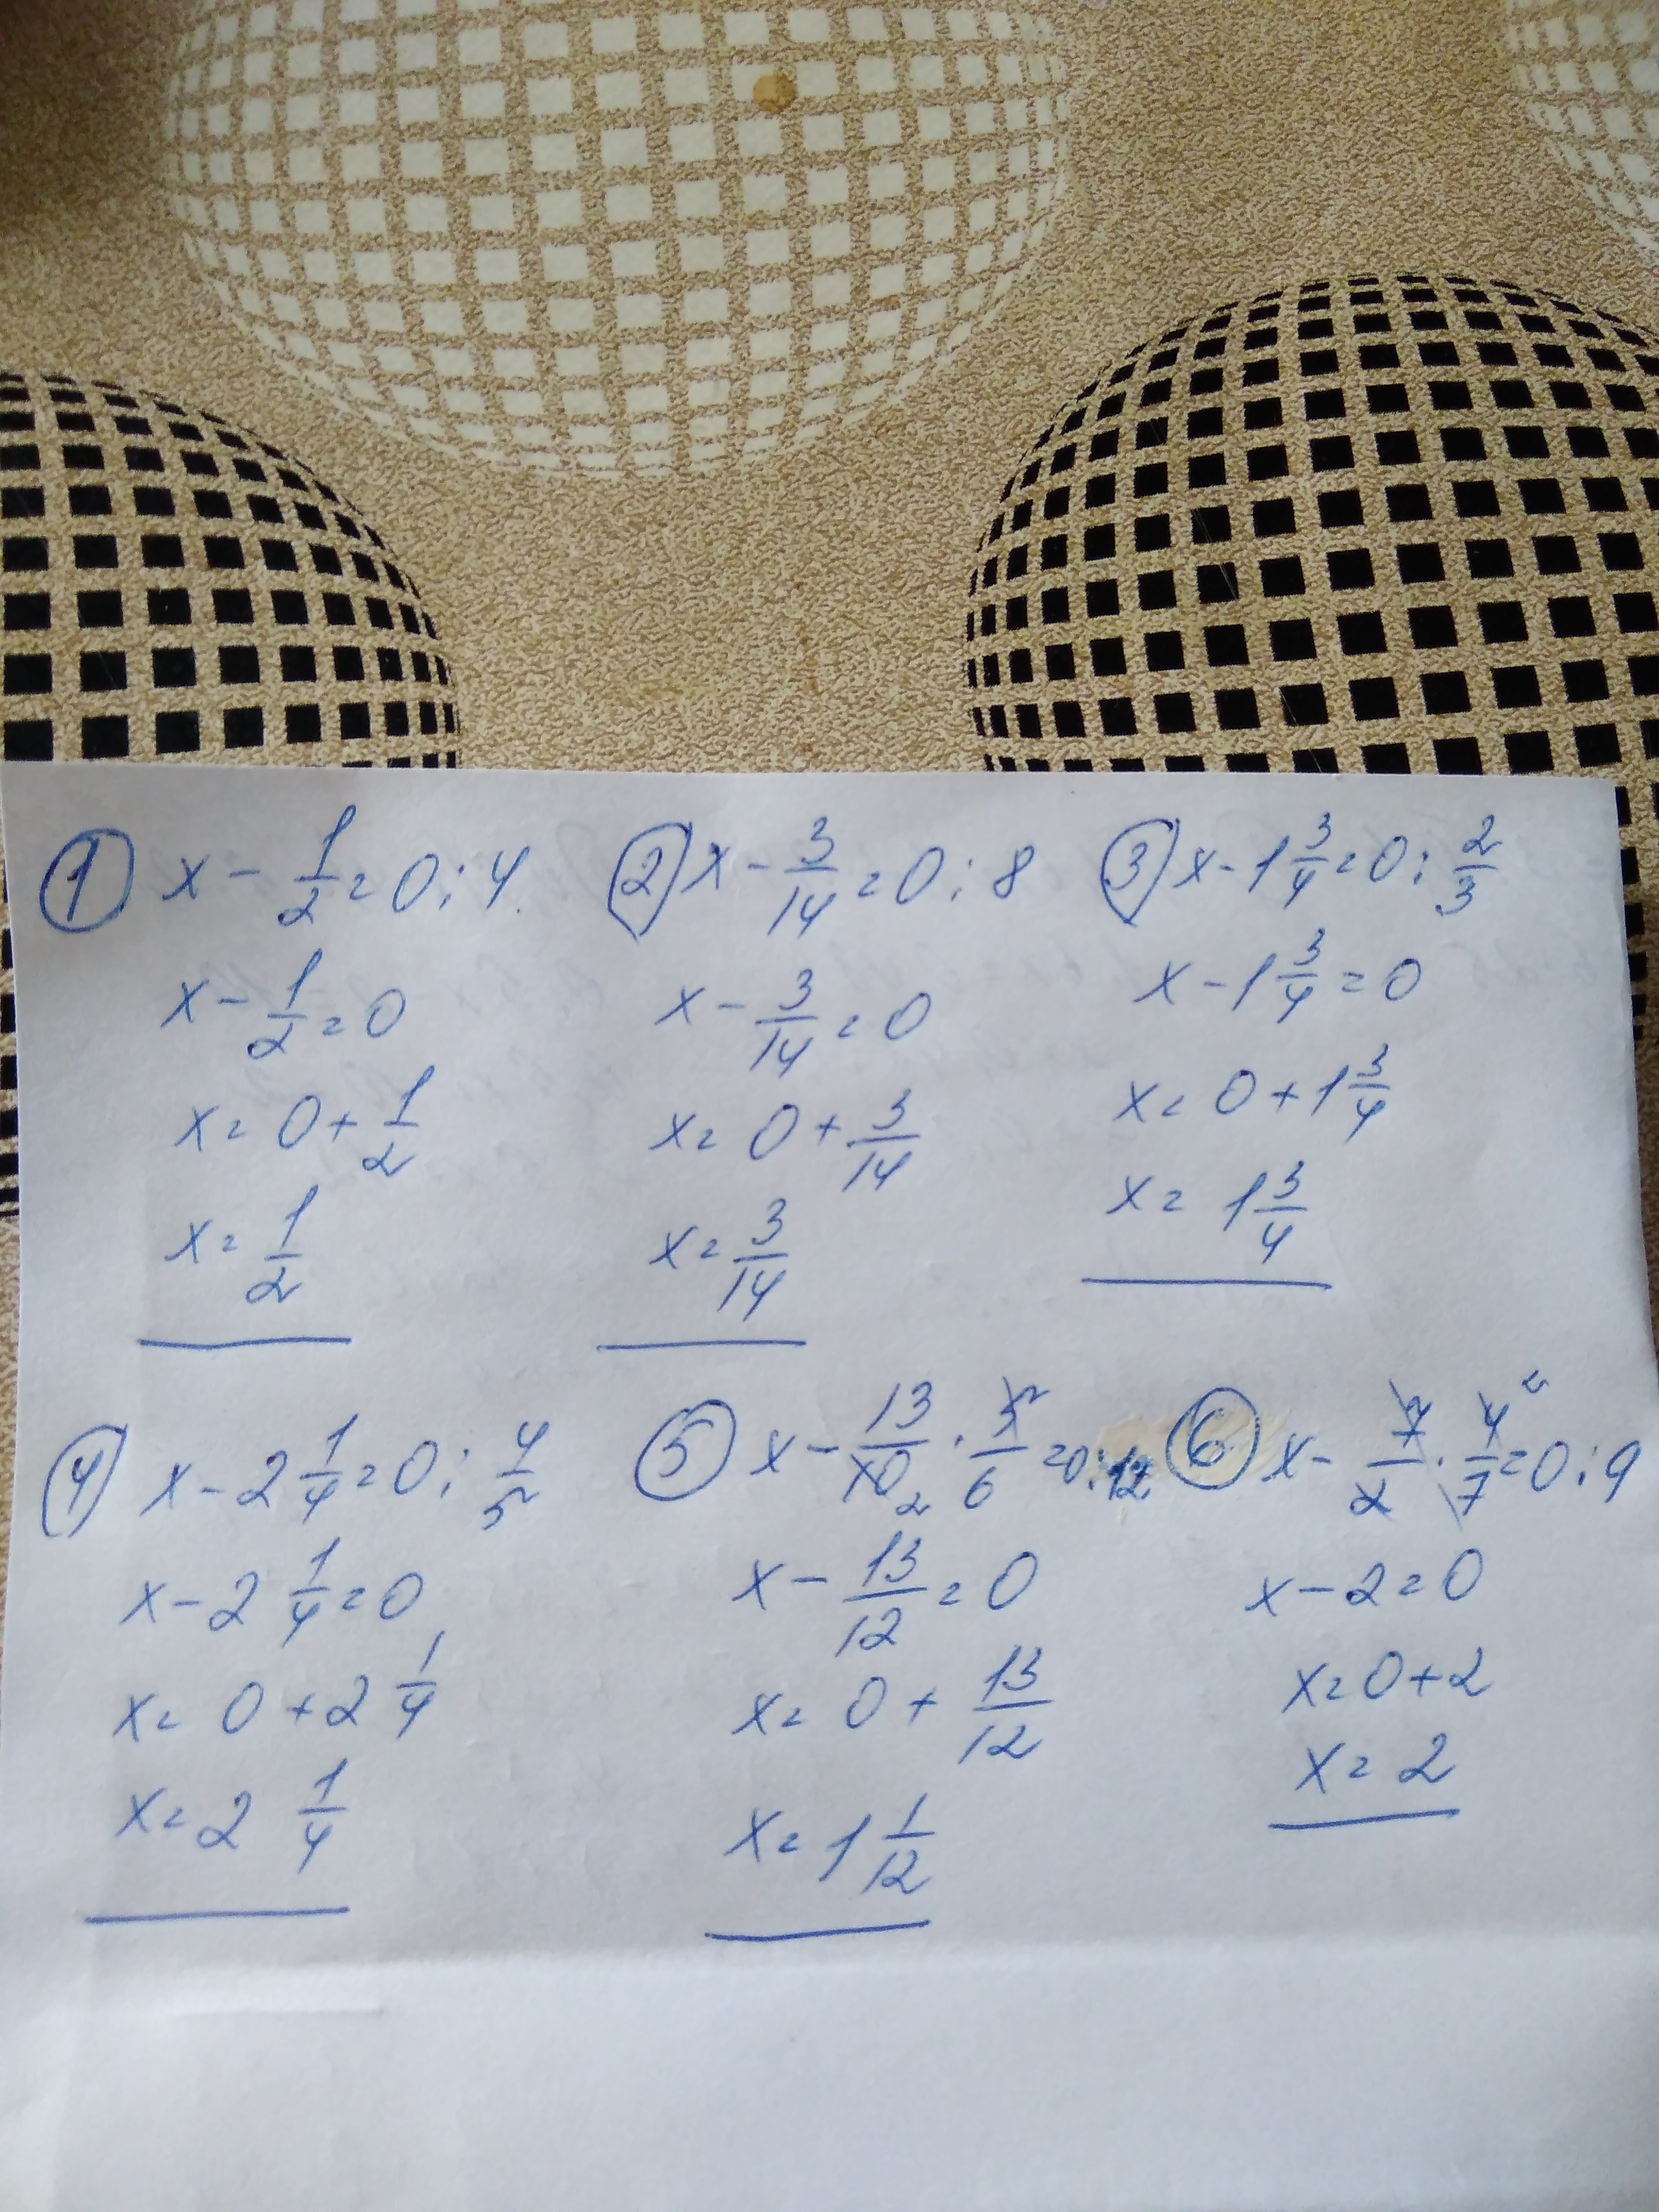 ① x - 1/2 = 0 : 4
x - 1/2 = 0
x = 0 + 1/2
x = 1/2
② x - 3/14 = 0 : 8
x - 3/14 = 0
x = 0 + 3/14
x = 3/14
③ x - 1 3/4 = 0 : 2/3
x - 1 3/4 = 0
x = 0 + 1 3/4
x = 1 3/4
④ x - 2 1/4 = 0 : 4/5
x - 2 1/4 = 0
x = 0 + 2 1/4
x = 2 1/4
⑤ x - 13/10 2 · 5/6 = 0 : 12
x - 13/12 = 0
x = 0 + 13/12
x = 1 1/12
⑥ x - 7/2 · 4/7 2 = 0 : 9
x - 2 = 0
x = 0 + 2
x = 2